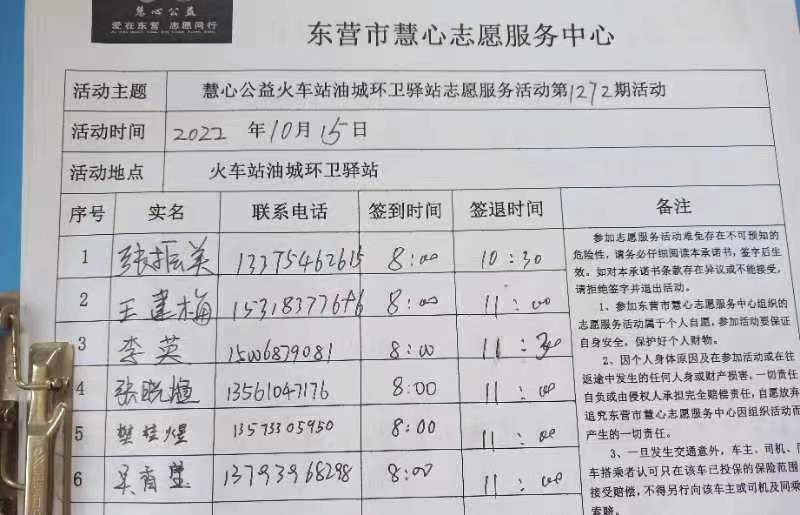 慧心公益
爱在东营 志愿同行
东营市慧心志愿服务中心
活动主题 慧心公益火车站油城环卫驿站志愿服务活动第1272期活动
活动时间 2022 年10月15日
活动地点 火车站油城环卫驿站
序号 实名 联系电话 签到时间 签退时间 备注
1 张振美 13375462615 8:00 10:30
2 王建梅 8:00 11:00
3 李英 15006879081 8:00 11:30
4 张晓 13561047176 8:00 11:00
5 樊桂煜 13573305950 8:00 11:00
6 吴 13793968298 8:00 11:00
参加志愿服务活动难免存在不可预知的
危险性,请务必仔细阅读本承诺书,签字后生
效。如对本承诺书条款存在异议或不能接受,
请拒绝签字并退出活动。
1、参加东营市慧心志愿服务中心组织的
志愿服务活动属于个人自愿,参加活动要保证
自身安全,保护好个人财物。
2、因个人身体原因及在参加活动或在往
返途中发生的任何人身或财产损害,一切责任
自负或由侵权人承担完全赔偿责任,自愿放弃
追究东营市慧心志愿服务中心因组织活动而
产生的一切责任。
3、一旦发生交通意外,车主、司机、同
车搭乘者认可只在该车已投保的保险范围
接受赔偿,不得另行向该车主或司机及同乘
索赔。